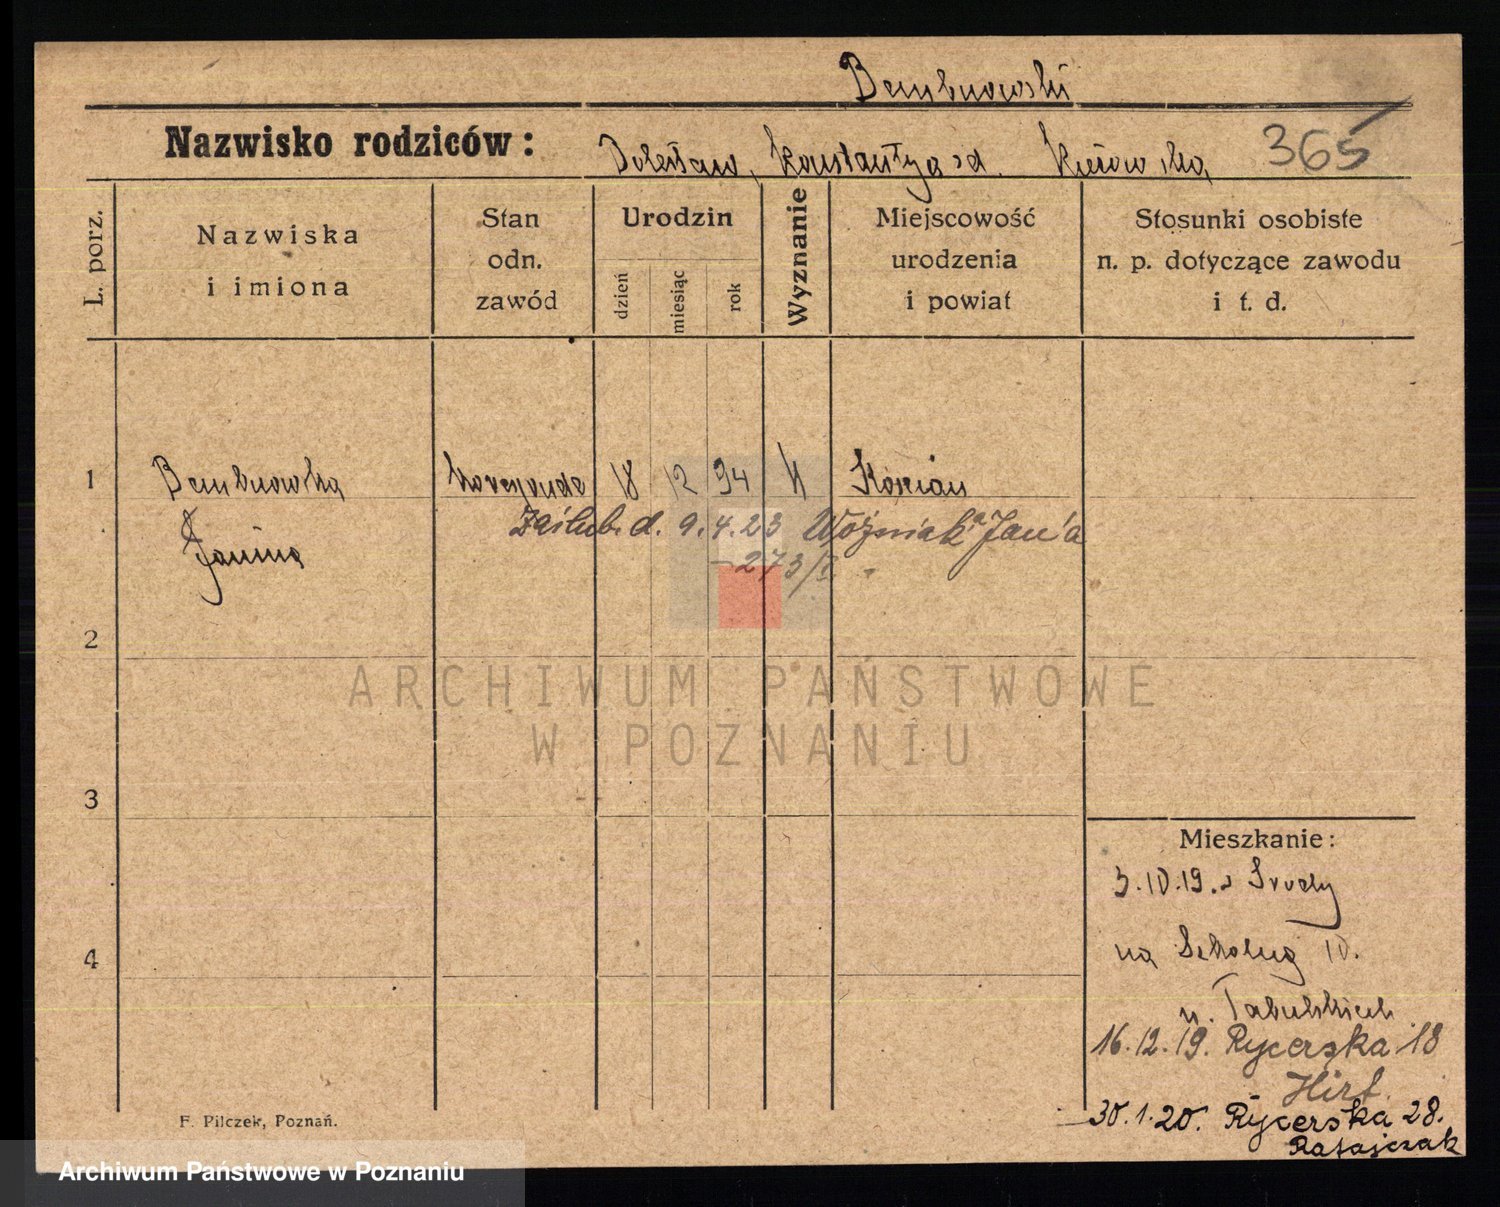 Nazwisko rodziców:
Konstancya zd.
365
L. porz.
Nazwiska
i imiona
Stan
odn.
zawód
Urodzin
dzień
miesiąc
rok
Wyznanie
Miejscowość
urodzenia
i powiat
Stosunki osobiste
n. p. dotyczące zawodu
i t. d.
1
18 12 94 k Kościan
Zaślub. d. 9.4.23 Woźniak Jan'a
Janina
273/
2
ARCHIWUM PAŃSTWOWE
W POZNANIU
3
Mieszkanie:
3.10.19. z Środy
4
na Szkolną 10.
u.
16.12.19. Rycerska 18
Hirt.
30.1.20. Rycerska 28.
Ratajczak
F. Pilczek, Poznań.
Archiwum Państwowe w Poznaniu